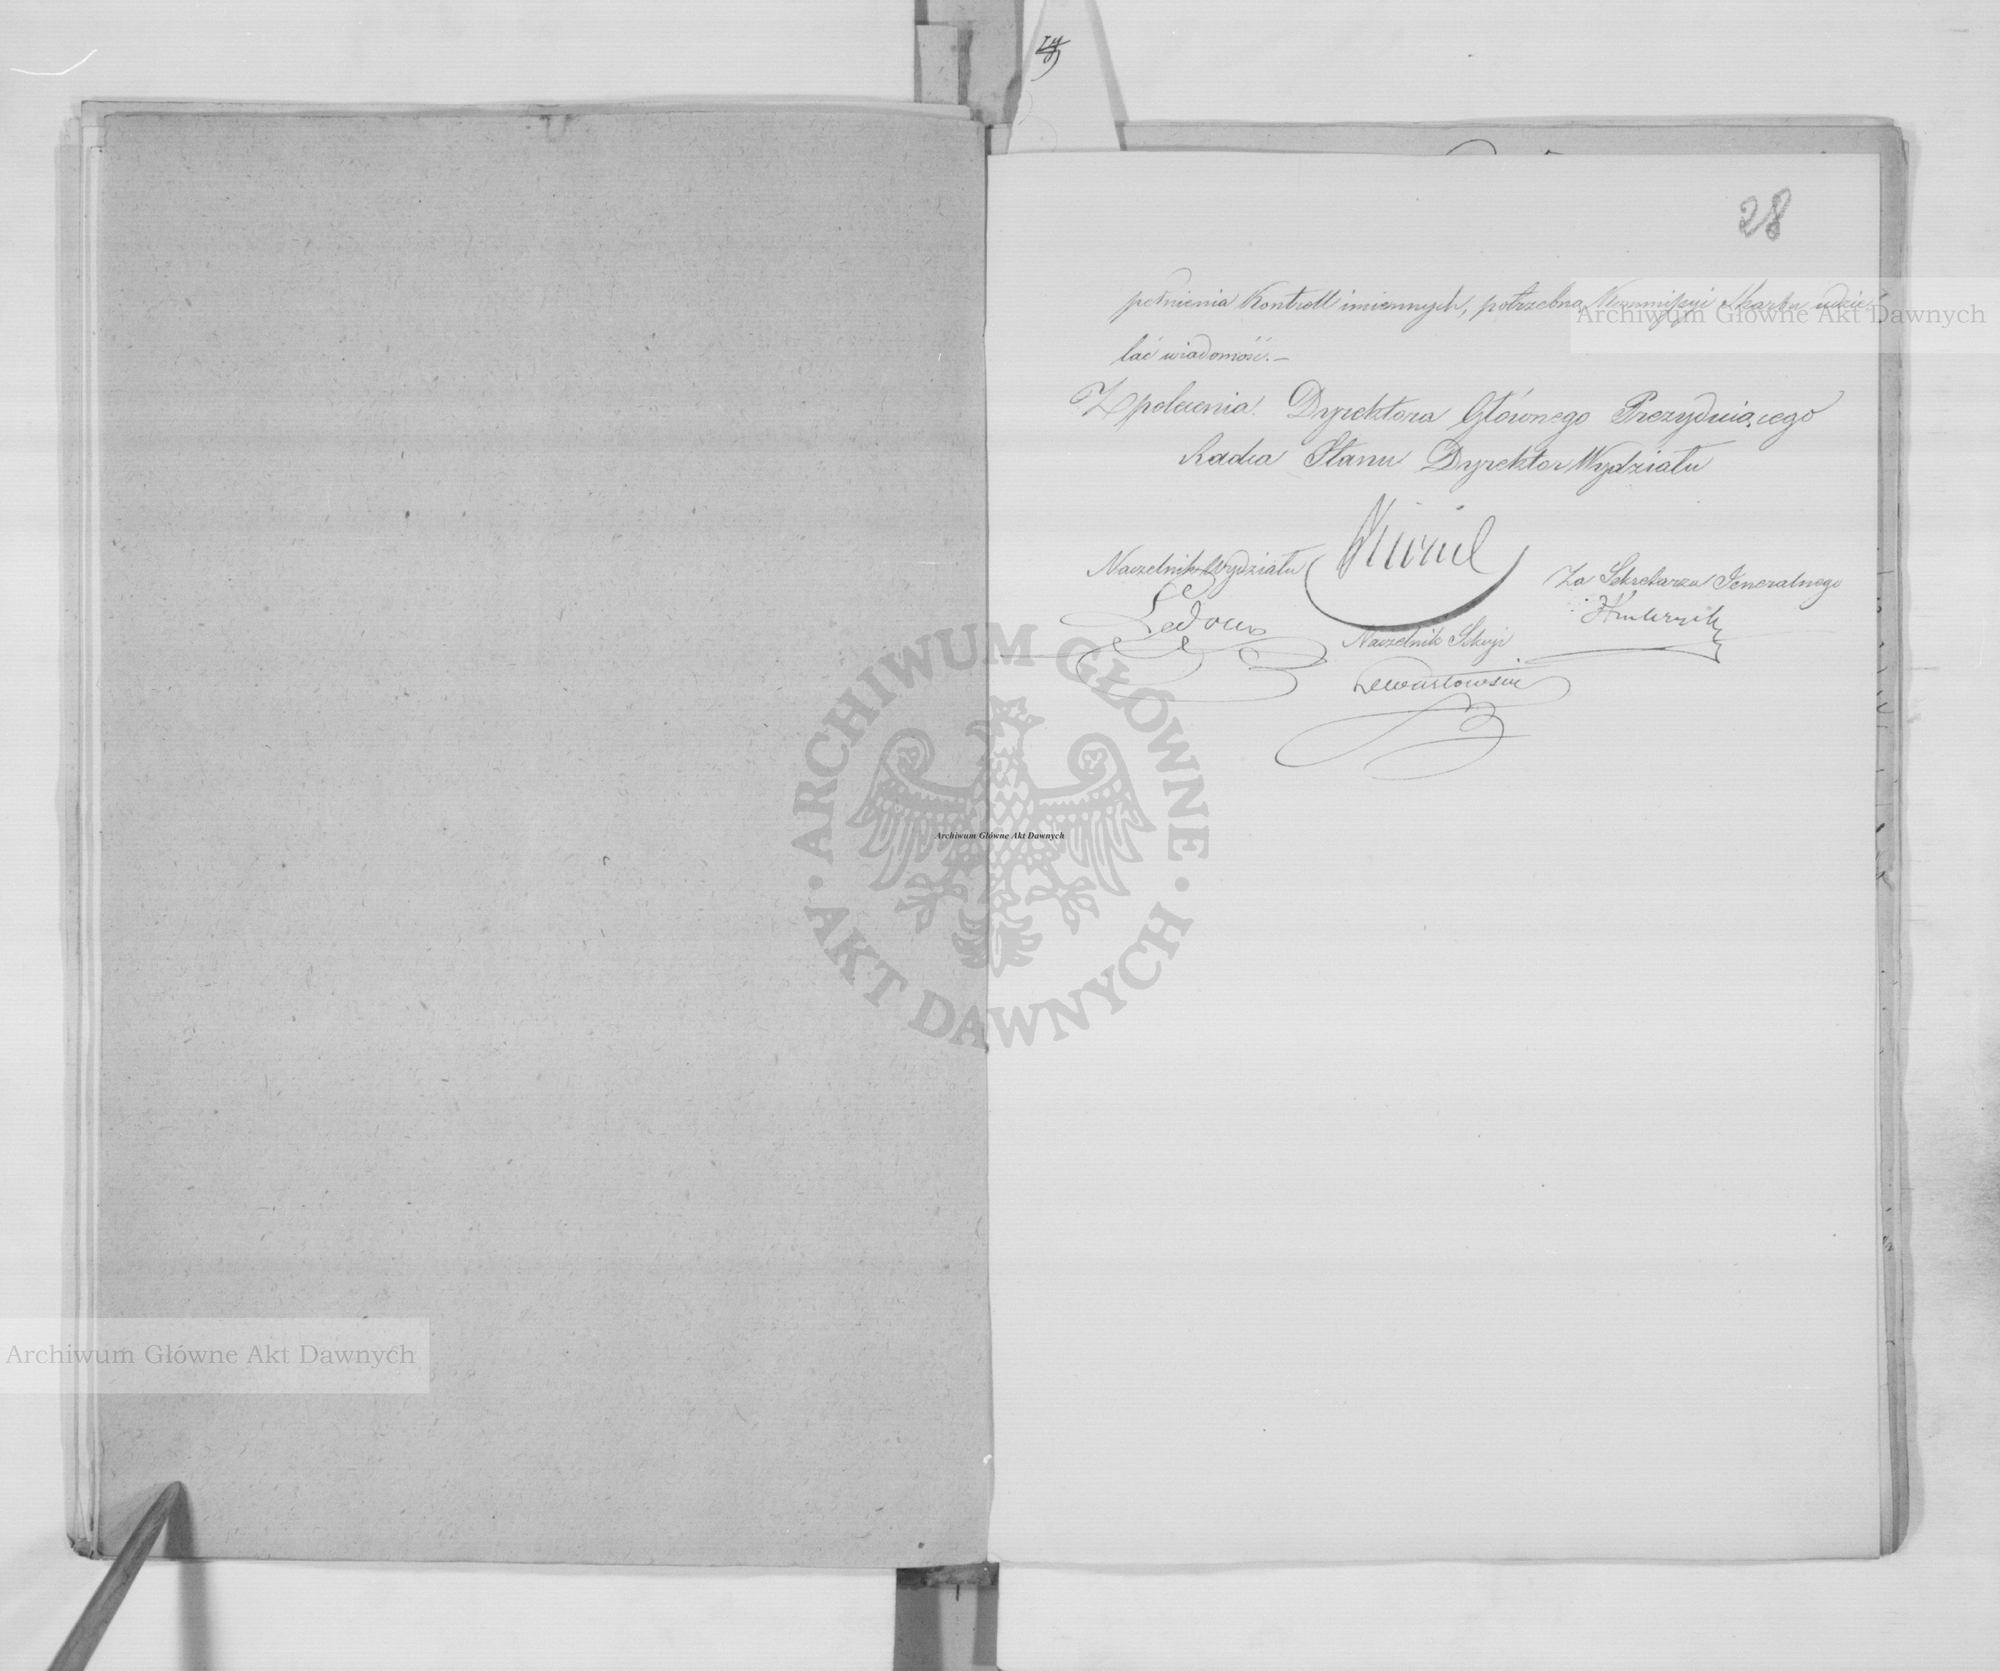 28
pełnienia Kontroll imiennych, potrzebną Kommissyi Skarbu udzie-
lać wiadomość.–
Z polecenia Dyrektora Głównego Prezydującego
Radca Stanu Dyrektor Wydziału
Naczelnik Wydziału
Za Sekretarza Jeneralnego
Naczelnik Sekcyi
Archiwum Główne Akt Dawnych
ARCHIWUM GŁÓWNE AKT DAWNYCH
Archiwum Główne Akt Dawnych
Archiwum Główne Akt Dawnych